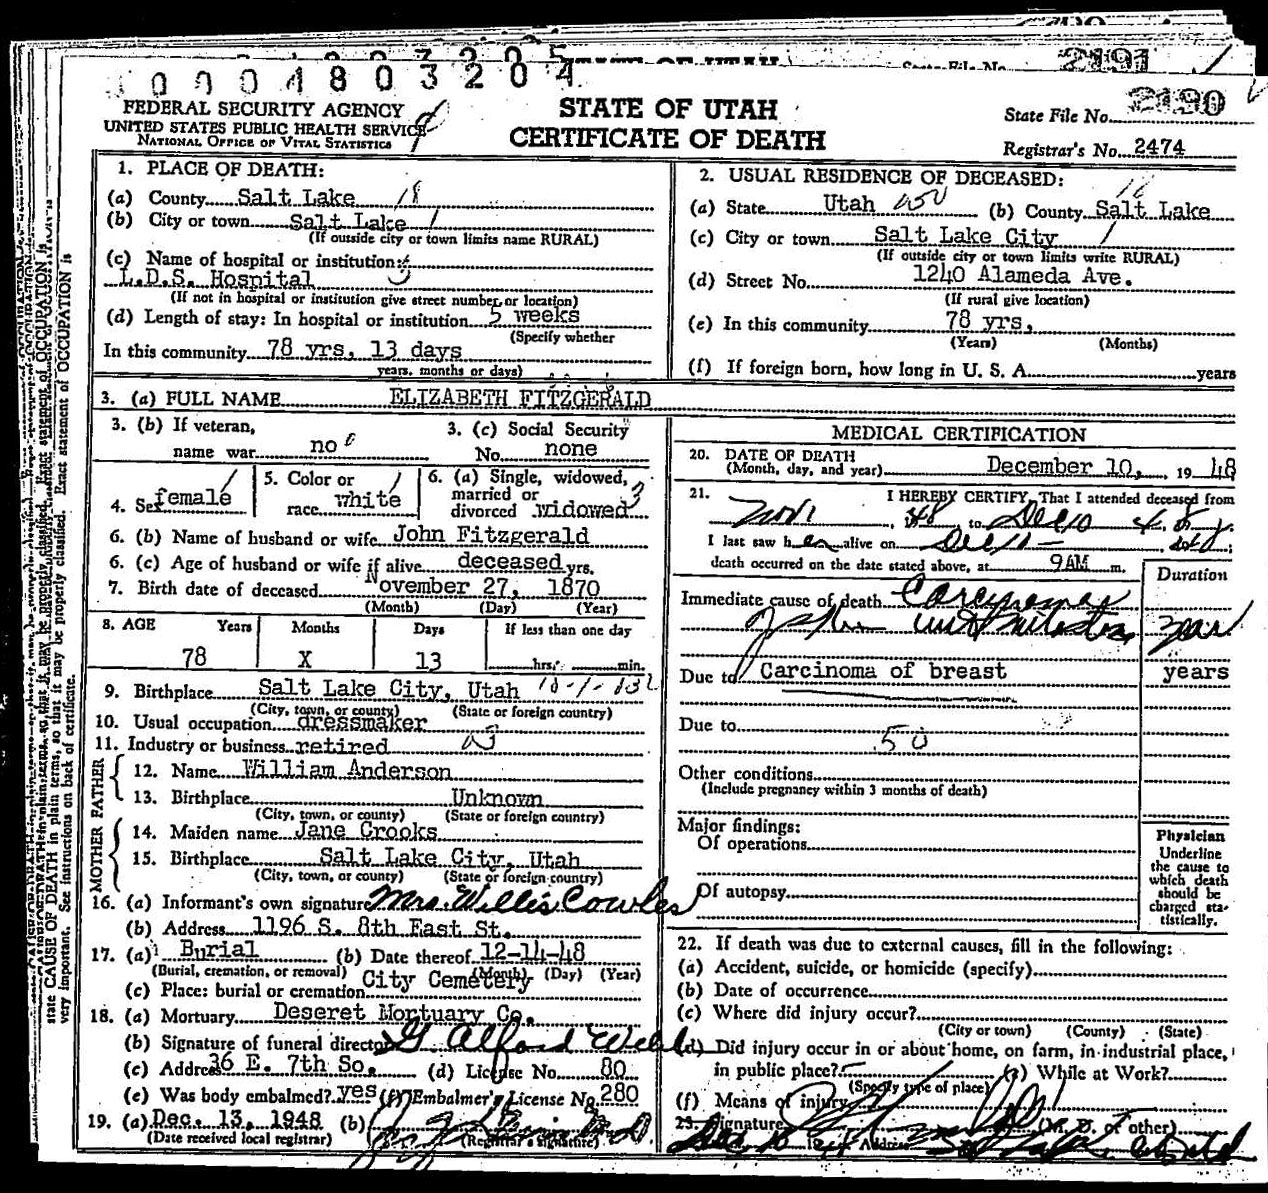 0001803204
FEDERAL SECURITY AGENCY
UNITED STATES PUBLIC HEALTH SERVICE
NATIONAL OFFICE OF VITAL STATISTICS
STATE OF UTAH
CERTIFICATE OF DEATH
State File No. 2190
Registrar's No. 2474
1. PLACE OF DEATH:
(a) County Salt Lake 18
(b) City or town Salt Lake 1
(If outside city or town limits name RURAL)
(c) Name of hospital or institution:
L.D.S. Hospital
(If not in hospital or institution give street number or location)
(d) Length of stay: In hospital or institution 5 weeks
(Specify whether
In this community 78 yrs. 13 days
years, months or days)
2. USUAL RESIDENCE OF DECEASED:
(a) State Utah (b) County Salt Lake
(c) City or town Salt Lake City 1
(If outside city or town limits write RURAL)
(d) Street No. 1240 Alameda Ave.
(If rural give location)
(e) In this community 78 yrs.
(Years) (Months)
(f) If foreign born, how long in U. S. A. years
3. (a) FULL NAME ELIZABETH FITZGERALD
3. (b) If veteran,
name war no
3. (c) Social Security
No. none
4. Sex female
5. Color or
race white
6. (a) Single, widowed,
married or
divorced widowed 3
6. (b) Name of husband or wife John Fitzgerald
6. (c) Age of husband or wife if alive deceased yrs.
7. Birth date of deceased November 27, 1870
(Month) (Day) (Year)
8. AGE Years Months Days If less than one day
78 X 13 hrs. min.
9. Birthplace Salt Lake City, Utah
(City, town, or county) (State or foreign country)
10. Usual occupation dressmaker
11. Industry or business retired
FATHER
12. Name William Anderson
13. Birthplace Unknown
(City, town, or county) (State or foreign country)
MOTHER
14. Maiden name Jane Crooks
15. Birthplace Salt Lake City, Utah
(City, town, or county) (State or foreign country)
16. (a) Informant's own signature Mrs. Willis Cowles
(b) Address 1196 S. 8th East St.
17. (a) Burial (b) Date thereof 12-14-48
(Burial, cremation, or removal) (Month) (Day) (Year)
(c) Place: burial or cremation City Cemetery
18. (a) Mortuary Deseret Mortuary Co.
(b) Signature of funeral director
(c) Address 36 E. 7th So. (d) License No. 80
(e) Was body embalmed? yes (f) Embalmer's License No. 280
19. (a) Dec. 13, 1948 (b)
(Date received local registrar) (Registrar's signature)
MEDICAL CERTIFICATION
20. DATE OF DEATH
(Month, day, and year) December 10, 19 48
21. I HEREBY CERTIFY, That I attended deceased from
Nov , 48 to Dec 10 48
I last saw her alive on Dec 10
death occurred on the date stated above, at 9AM m.
Duration
Immediate cause of death Carcinoma
year
Due to Carcinoma of breast years
Due to
50
Other conditions
(Include pregnancy within 3 months of death)
Major findings:
Of operations
Of autopsy
Physician
Underline
the cause to
which death
should be
charged sta-
tistically.
22. If death was due to external causes, fill in the following:
(a) Accident, suicide, or homicide (specify)
(b) Date of occurrence
(c) Where did injury occur?
(City or town) (County) (State)
(d) Did injury occur in or about home, on farm, in industrial place,
in public place? (e) While at Work?
(Specify type of place)
(f) Means of injury
23. Signature (M. D. or other)
Dec 10 1948 Address
state CAUSE OF DEATH in plain terms, so that it may be properly classified. Exact statement of OCCUPATION is
very important. See instructions on back of certificate.
2191